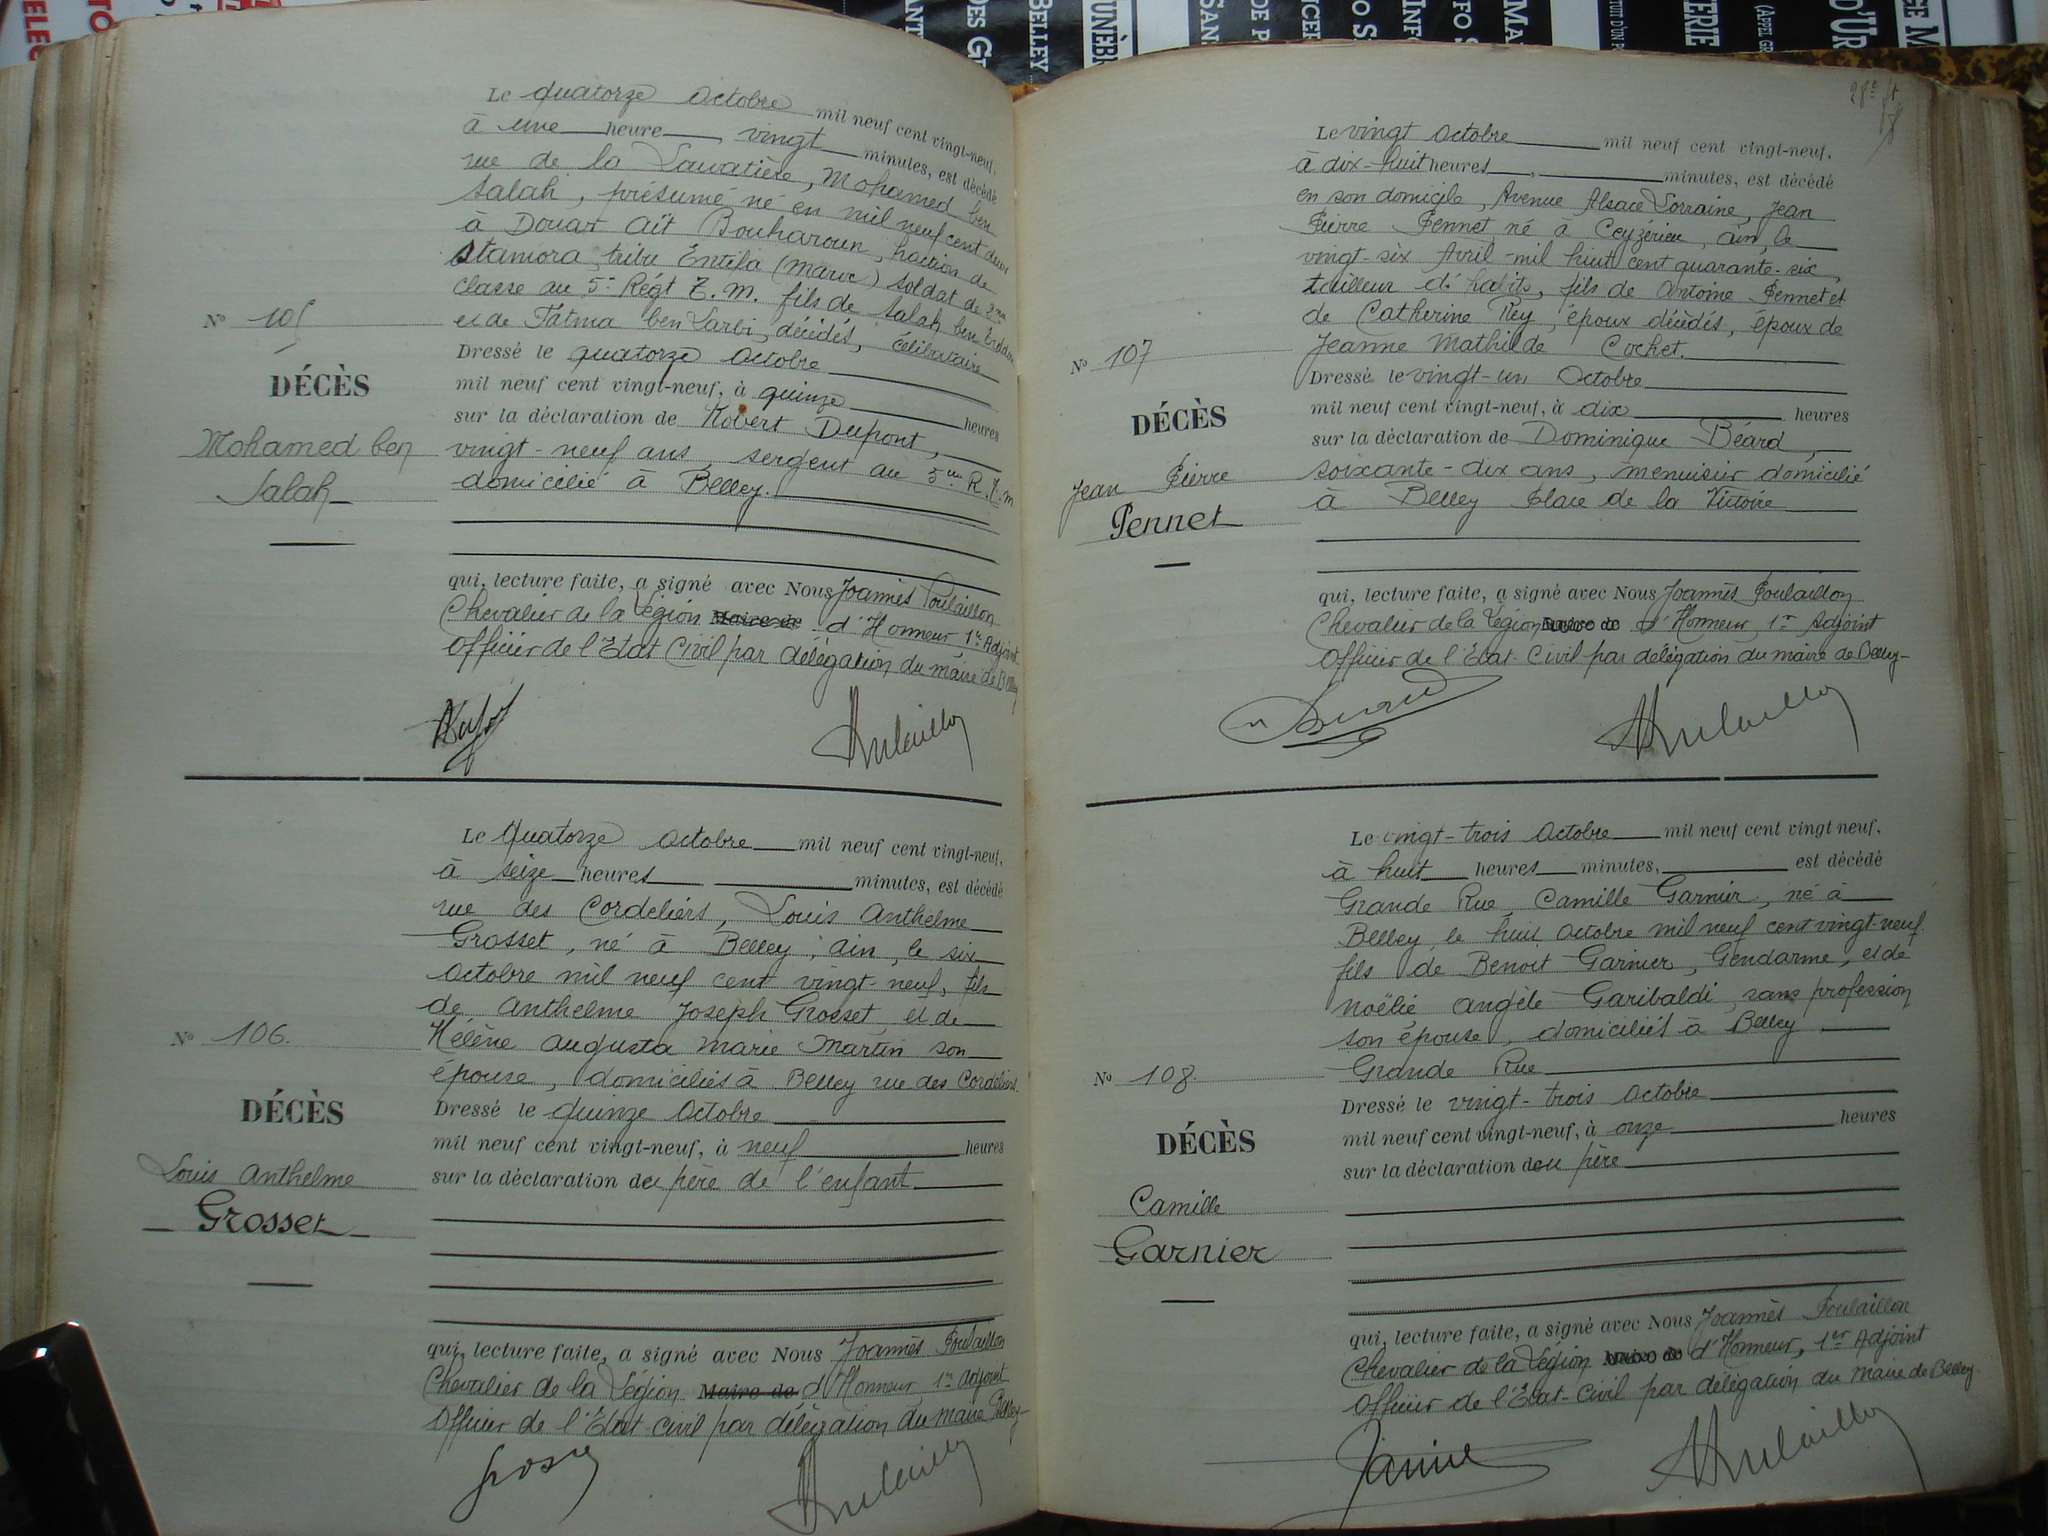 BELLEY
Le quatorze Octobre mil neuf cent vingt-neuf,
à une heure vingt minutes, est décédé
rue de la Mohamed ben
Salah, présumé né en mil neuf cent deux
à Douar Ait Bouharoun, fraction de
Stamora, tribu Entifa (Maroc) soldat de 2me
classe au 5e Régt T. M. fils de Salah ben
et de Fatma ben Larbi, décédés, célibataire
Dressé le quatorze Octobre
mil neuf cent vingt-neuf, à quinze heures
sur la déclaration de Robert Dupont,
vingt-neuf ans, sergent au 5me R.T.M
domicilié à Belley.
qui, lecture faite, a signé avec Nous Joannès Poulaillon
Chevalier de la Légion Maire de d'Honneur, 1er Adjoint
Officier de l'Etat Civil par délégation du maire de Belley
No 105
DÉCÈS
Mohamed ben
Salah
Le Quatorze Octobre mil neuf cent vingt-neuf,
à seize heures minutes, est décédé
rue des Cordeliers, Louis Anthelme
Grosset, né à Belley, ain, le six
Octobre mil neuf cent vingt-neuf, fils
de Anthelme Joseph Grosset, et de
Hélène Augusta Marie Martin son
épouse, domiciliés à Belley rue des Cordeliers.
Dressé le quinze Octobre
mil neuf cent vingt-neuf, à neuf heures
sur la déclaration du père de l'enfant
qui, lecture faite, a signé avec Nous Joannès Poulaillon
Chevalier de la Légion Maire de d'Honneur, 1er Adjoint
Officier de l'Etat-Civil par délégation du Maire Belley
No 106.
DÉCÈS
Louis Anthelme
Grosset
Le vingt Octobre mil neuf cent vingt-neuf,
à dix-huit heures minutes, est décédé
en son domicile, Avenue Alsace Lorraine, Jean
Pierre Pennet, né à Ceyzerieu, ain, le
vingt-six Avril mil huit cent quarante-six,
tailleur d'habits, fils de Antoine Pennet et
de Catherine Rey, époux décédés, époux de
Jeanne Mathilde Cochet.
Dressé le vingt-un Octobre
mil neuf cent vingt-neuf, à dix heures
sur la déclaration de Dominique Béard,
soixante-dix ans, menuisier domicilié
à Belley Place de la Victoire
qui, lecture faite, a signé avec Nous Joannès Poulaillon
Chevalier de la Légion Maire de d'Honneur, 1er Adjoint
Officier de l'Etat-Civil par délégation du maire de Belley
No 107
DÉCÈS
Jean Pierre
Pennet
Le vingt-trois Octobre mil neuf cent vingt-neuf,
à huit heures minutes, est décédé
Grande Rue, Camille Garnier, né à
Belley, le huit Octobre mil neuf cent vingt-neuf
fils de Benoit Garnier, Gendarme, et de
Noëlie Angèle Garibaldi, sans profession
son épouse, domiciliés à Belley
Grande Rue
Dressé le vingt-trois Octobre
mil neuf cent vingt-neuf, à onze heures
sur la déclaration du père
qui, lecture faite, a signé avec Nous Joannès Poulaillon
Chevalier de la Légion Maire de d'Honneur, 1er Adjoint
Officier de l'Etat-Civil par délégation du Maire de Belley
No 108.
DÉCÈS
Camille
Garnier